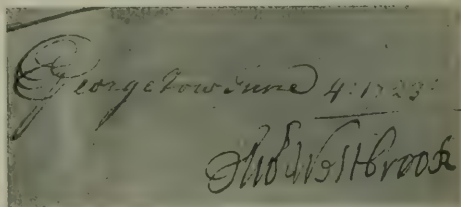 Georgetow June 4: 1723:
Tho Westbrook